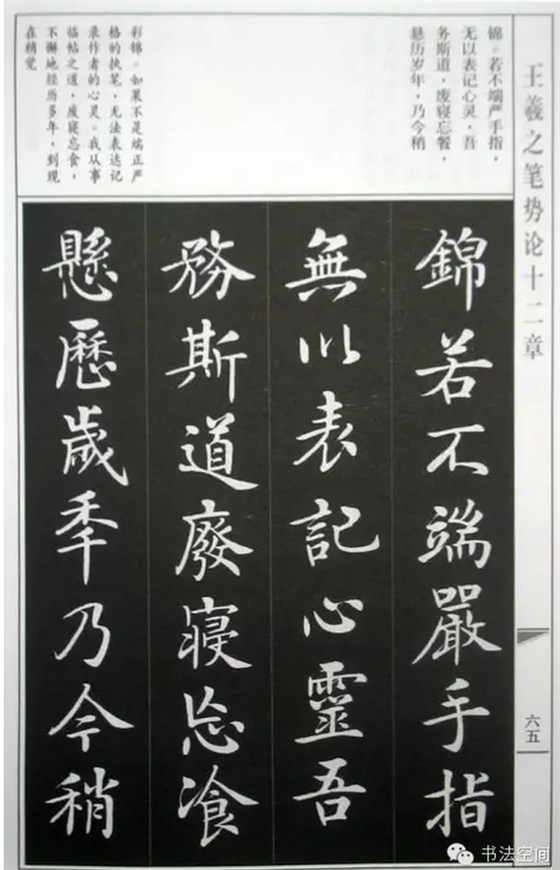 王羲之笔势论十二章
六五
锦。若不端严手指，
无以表记心灵，吾
务斯道，废寝忘餐，
悬历岁年，乃今稍
彩锦。如果不是端正严
格的执笔，无法表达记
录作者的心灵。我从事
临帖之道，废寝忘食，
不懈地经历多年，到现
在稍觉
錦若不端嚴手指
無以表記心靈吾
務斯道廢寢忘飡
懸歷歲季乃今稍
书法空间